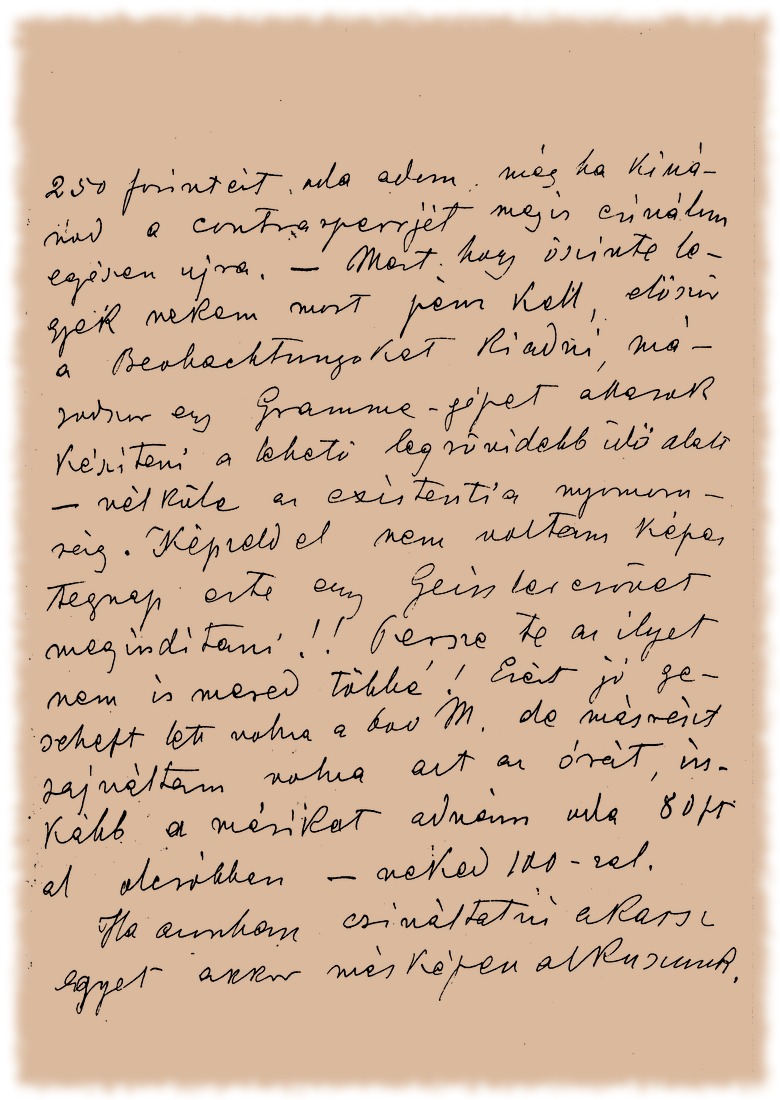 250 forintért oda adom még ha kiná-
nád a contrasperrjét megis csinálom
egészen ujra. — Mert hogy öszinte le-
gyek nekem most pénz kell, elöször
a Beobachtungokat kiadni, má-
sodszor egy Gramme-gépet akarok
készíteni a lehetö legrövidebb idö alatt
— nélküle az existentia nyomorú-
ság. Képzeld el nem voltam képes
tegnap este egy Geissler csövet
megindítani!! Persze te az ilyet
nem is mered többé! Ezért jó ge-
scheft lett volna a 600 M. de másrészt
sajnáltam volna azt az órát, in-
kább a másikat adnám oda 80 ft
al olcsóbban — neked 100-zal.
Ha azonban csináltatni akarsz
egyet akkor másképen alkuszunk.